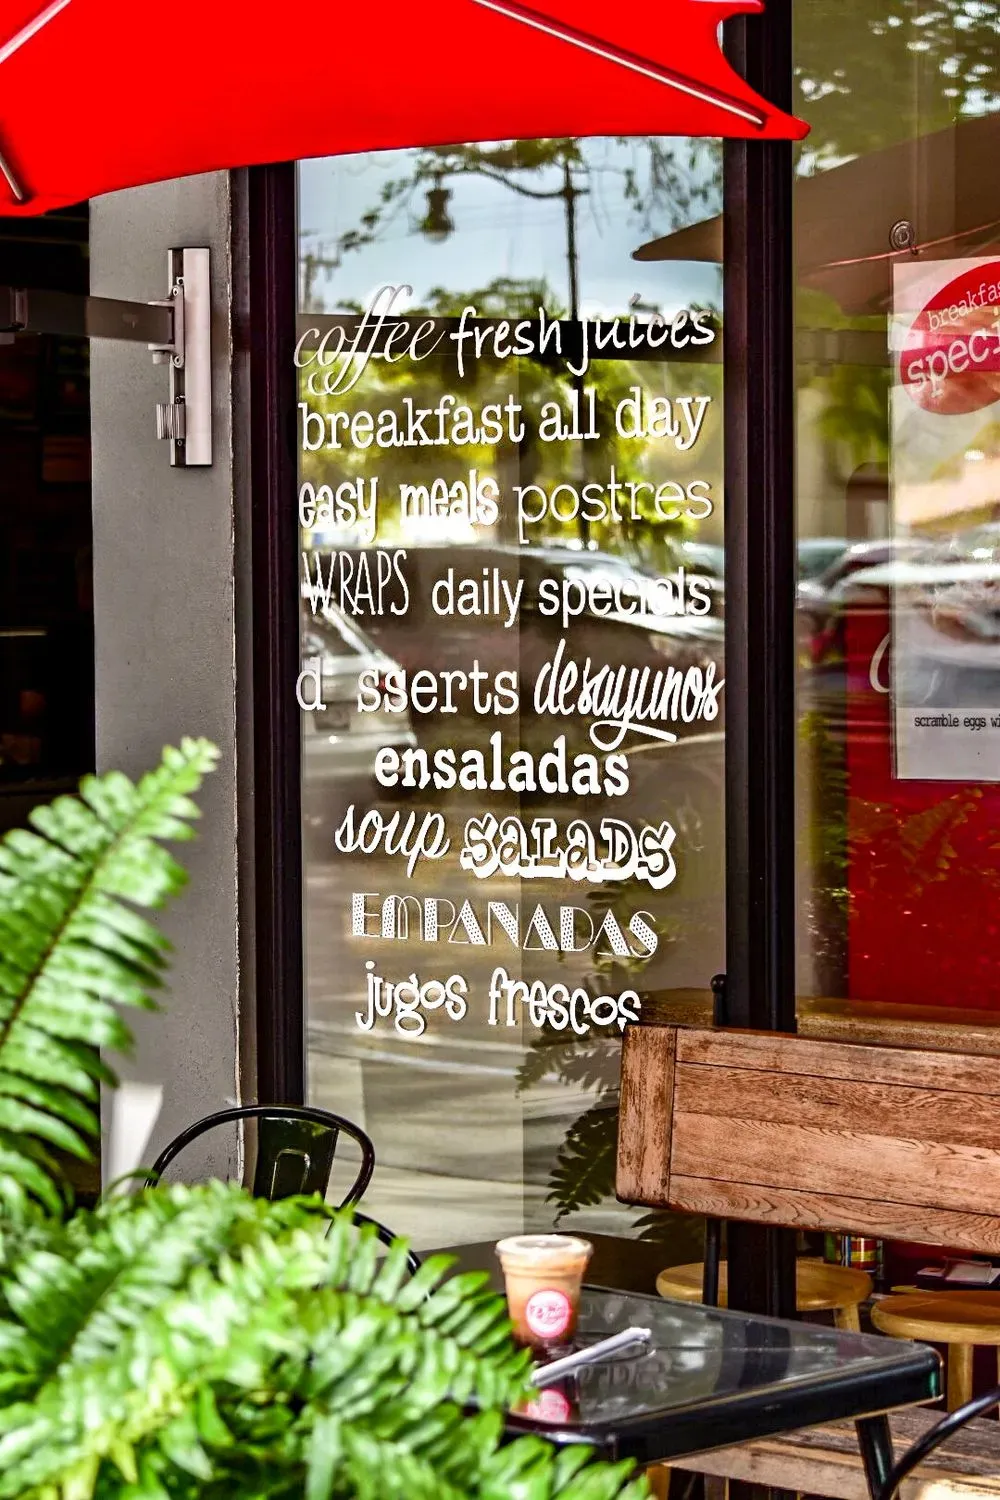 coffee fresh juices
breakfast all day
easy meals postres
WRAPS daily specials
d sserts desayunos
ensaladas
soup SALADS
EMPANADAS
jugos frescos
breakfas
speci
scramble eggs wi